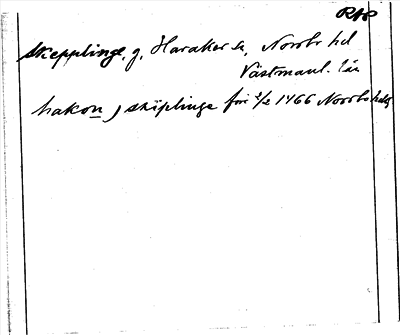 RAP
Skepplinge, g, Haraker sn, Norrbo hd
Västmanl. län
hakon j skiplinge för 2/2 1466 Norrbohds